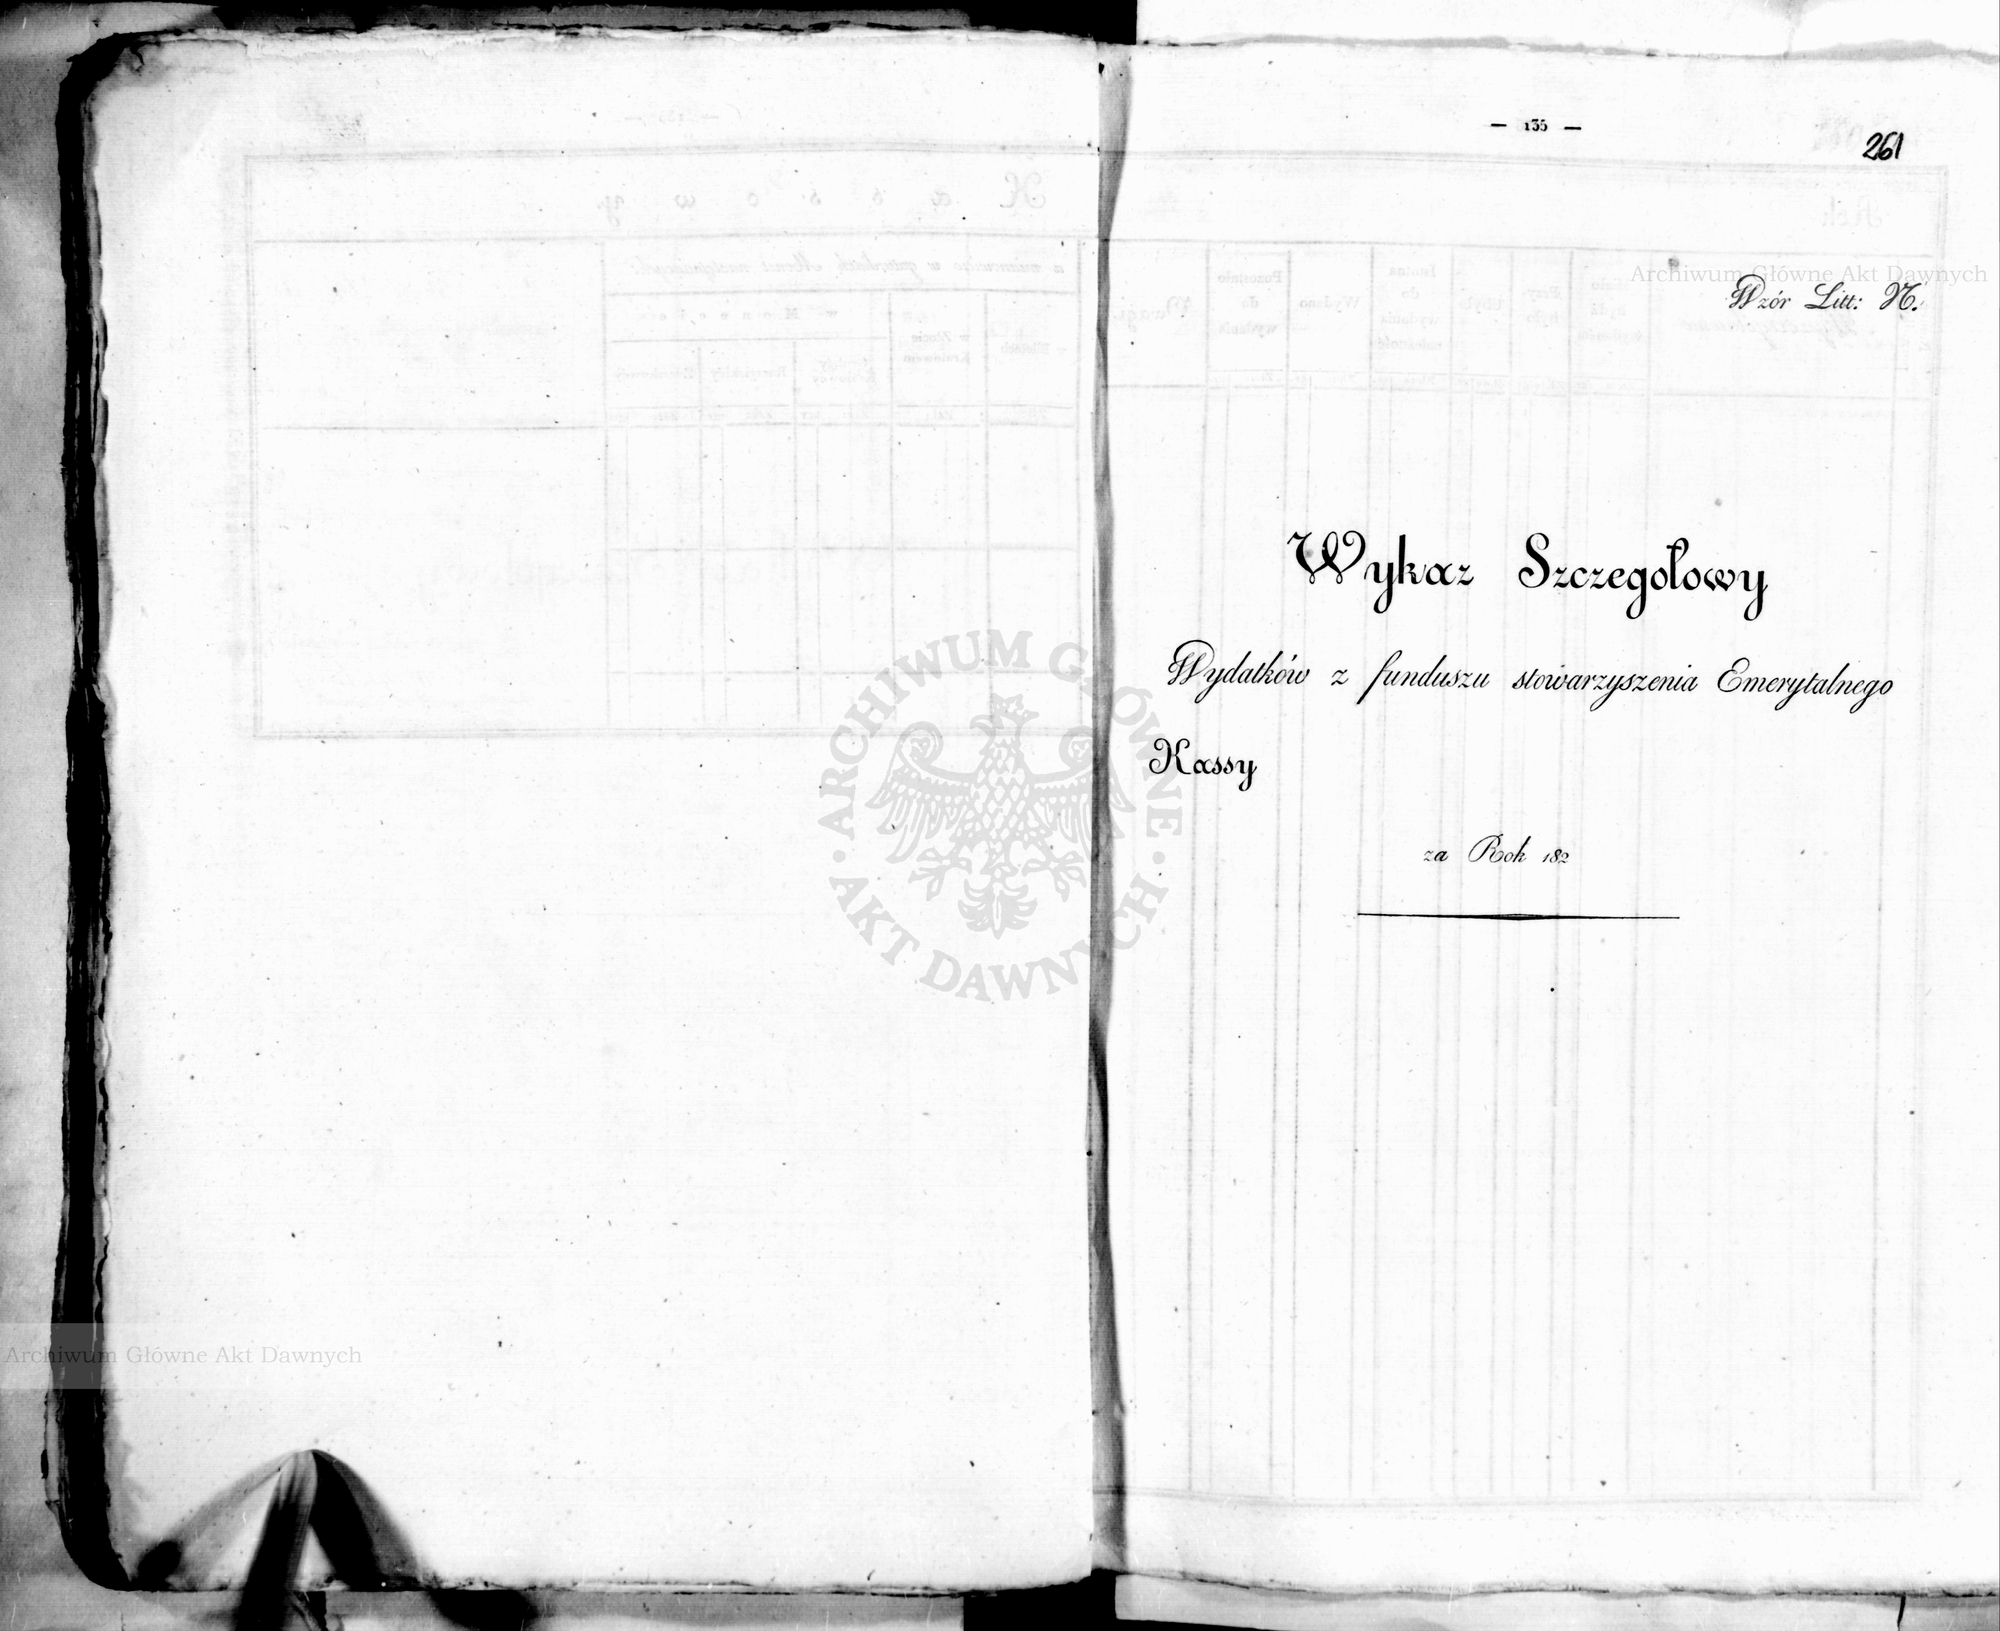 — 135 —
261
Archiwum Główne Akt Dawnych
Wzór Litt: N.
Wykaz Szczegołowy
Wydatków z funduszu stowarzyszenia Emerytalnego
Kassy
za Rok 182
ARCHIWUM GŁÓWNE
AKT DAWNYCH
Archiwum Główne Akt Dawnych